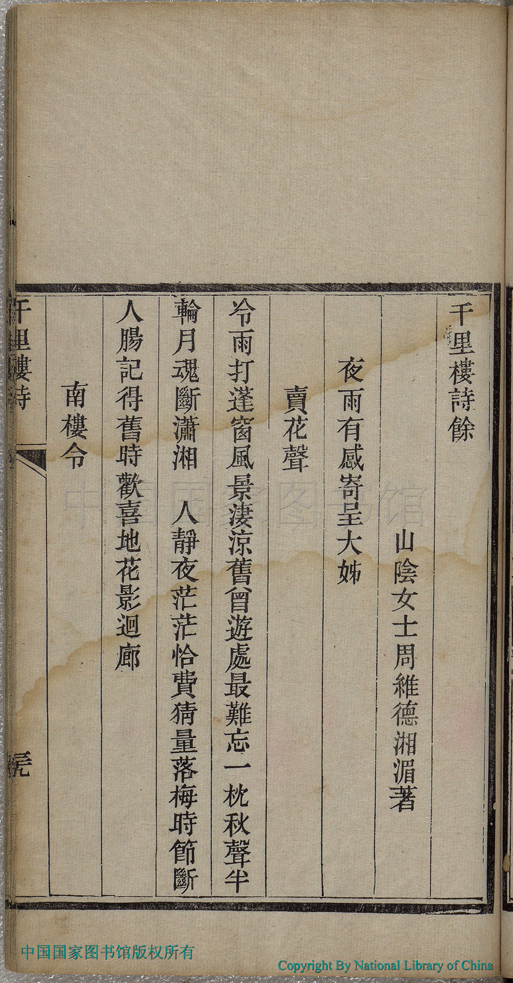 千里樓詩餘
山陰女士周維德湘湄著
夜雨有感寄呈大姊
賣花聲
冷雨打蓬窗風景淒涼舊曾遊處最難忘一枕秋聲半
輪月魂斷瀟湘　人靜夜茫茫恰費猜量落梅時節斷
人腸記得舊時歡喜地花影迴廊
南樓令
千里樓詩
中国国家图书馆
中国国家图书馆版权所有
Copyright By National Library of China